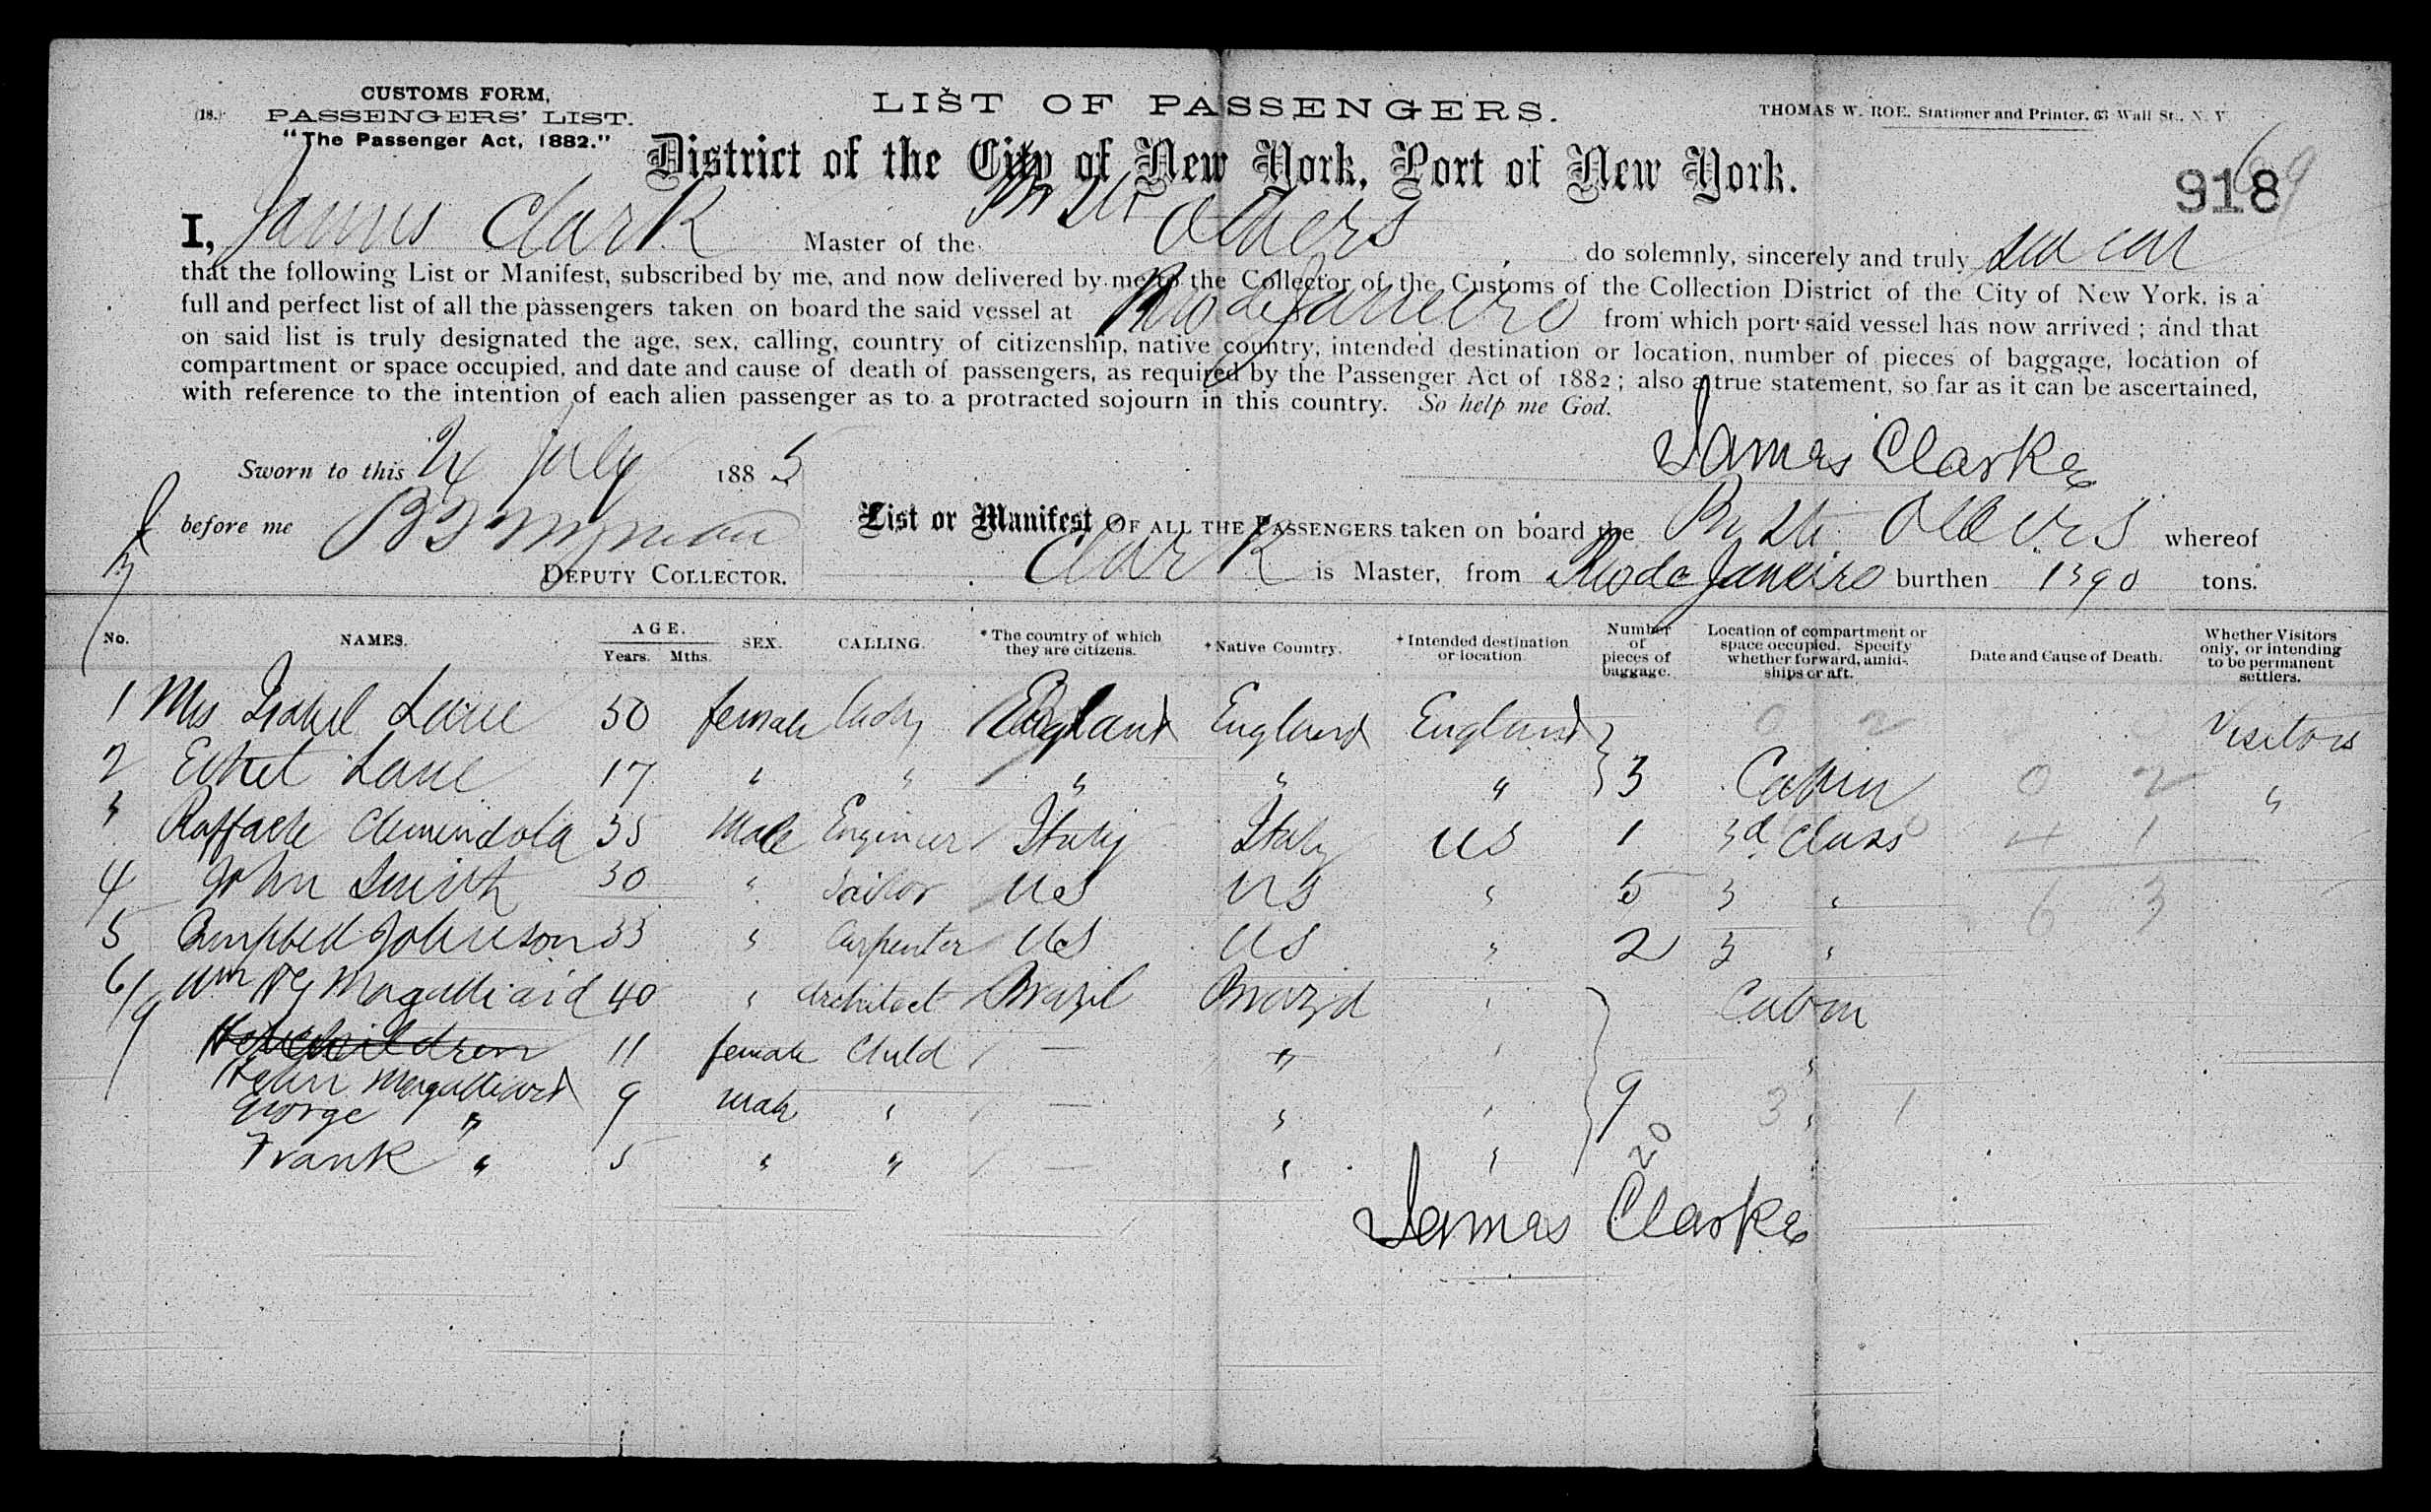 (18.)
CUSTOMS FORM,
PASSENGERS' LIST.
"The Passenger Act, 1882."
LIST OF PASSENGERS.
THOMAS W. ROE, Stationer and Printer, 63 Wall St., N. Y.
District of the City of New York, Port of New York.
918
I, James Clark Master of the Br Str Olbers do solemnly, sincerely and truly swear
that the following List or Manifest, subscribed by me, and now delivered by me to the Collector of the Customs of the Collection District of the City of New York, is a
full and perfect list of all the passengers taken on board the said vessel at Rio de Janeiro from which port said vessel has now arrived; and that
on said list is truly designated the age, sex, calling, country of citizenship, native country, intended destination or location, number of pieces of baggage, location of
compartment or space occupied, and date and cause of death of passengers, as required by the Passenger Act of 1882; also a true statement, so far as it can be ascertained,
with reference to the intention of each alien passenger as to a protracted sojourn in this country. So help me God.
James Clarke
Sworn to this 24 July 1885
before me
DEPUTY COLLECTOR.
List or Manifest OF ALL THE PASSENGERS taken on board the Br Str Olbers whereof
Clark is Master, from Rio de Janeiro burthen 1390 tons.
No. NAMES. AGE. Years. Mths. SEX. CALLING. * The country of which they are citizens. + Native Country. + Intended destination or location. Number of pieces of baggage. Location of compartment or space occupied. Specify whether forward, amidships or aft. Date and Cause of Death. Whether Visitors only, or intending to be permanent settlers.
1 Mrs Isabel Lane 50 female lady England England England 0 2 Visitors
2 Ethel Lane 17 " " " " " 3 Cabin 0 2 "
3 Raffaele 35 Male Engineer Italy Italy US 1 3d Class 4 1
4 John Smith 30 " Sailor US US " 5 3 " 6 3
5 Campbell Johnson 33 " Carpenter US US " 2 3 "
6/9 Wm 40 " Architect Brazil Brazil " Cabin
children 11 female Child — " " "
Helen
George " 9 male " — " " 9 " 3 1
Frank " 5 " " — " " " 20
James Clarke